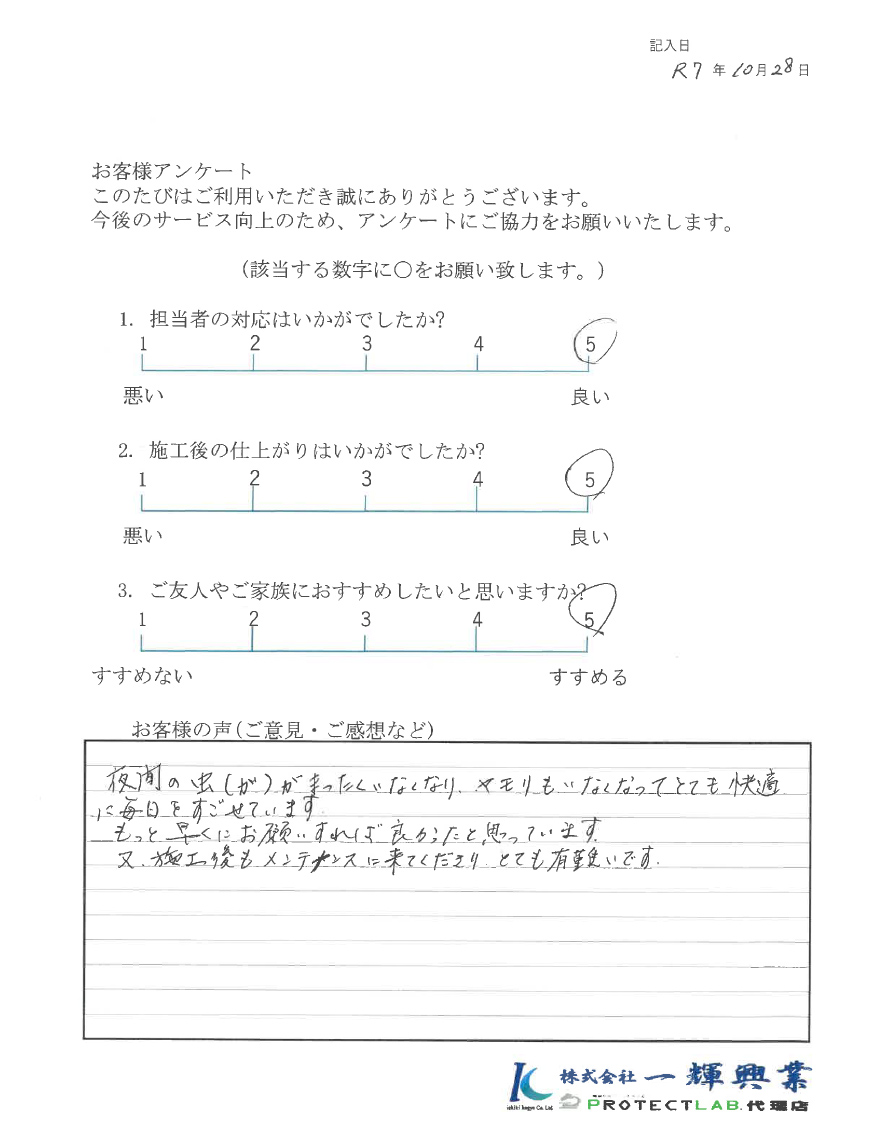 記入日
R7年10月28日
お客様アンケート
このたびはご利用いただき誠にありがとうございます。
今後のサービス向上のため、アンケートにご協力をお願いいたします。
(該当する数字に○をお願い致します。)
1. 担当者の対応はいかがでしたか?
1 2 3 4 5
悪い 良い
2. 施工後の仕上がりはいかがでしたか?
1 2 3 4 5
悪い 良い
3. ご友人やご家族におすすめしたいと思いますか?
1 2 3 4 5
すすめない すすめる
お客様の声(ご意見・ご感想など)
夜間の虫(が)がまったくいなくなり、ヤモリもいなくなってとても快適
に毎日をすごせています。
もっと早くにお願いすれば良かったと思っています。
又、施工後もメンテナンスに来てくださり、とても有難いです。
株式会社 一輝興業
ichiki kogyo Co. Ltd.
PROTECTLAB.代理店